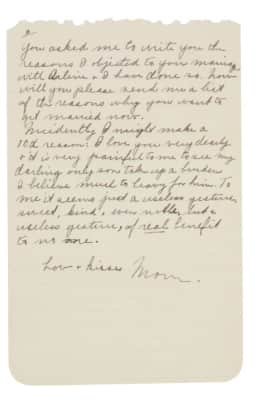 2
You asked me to write you the
reasons I objected to your marriage
with Arline + I have done so. Now
will you please send me a list
of the reasons why you want to
get married now.
Incidently I might make a
10th reason: I love you very dearly
+ it is very painful to me to see my
darling only son take up a burden
I believe must to heavy for him. To
me it seems just a useless gesture,
sweet, kind, even noble, but a
useless gesture, of real benefit
to no one.
Love + kisses Mom.